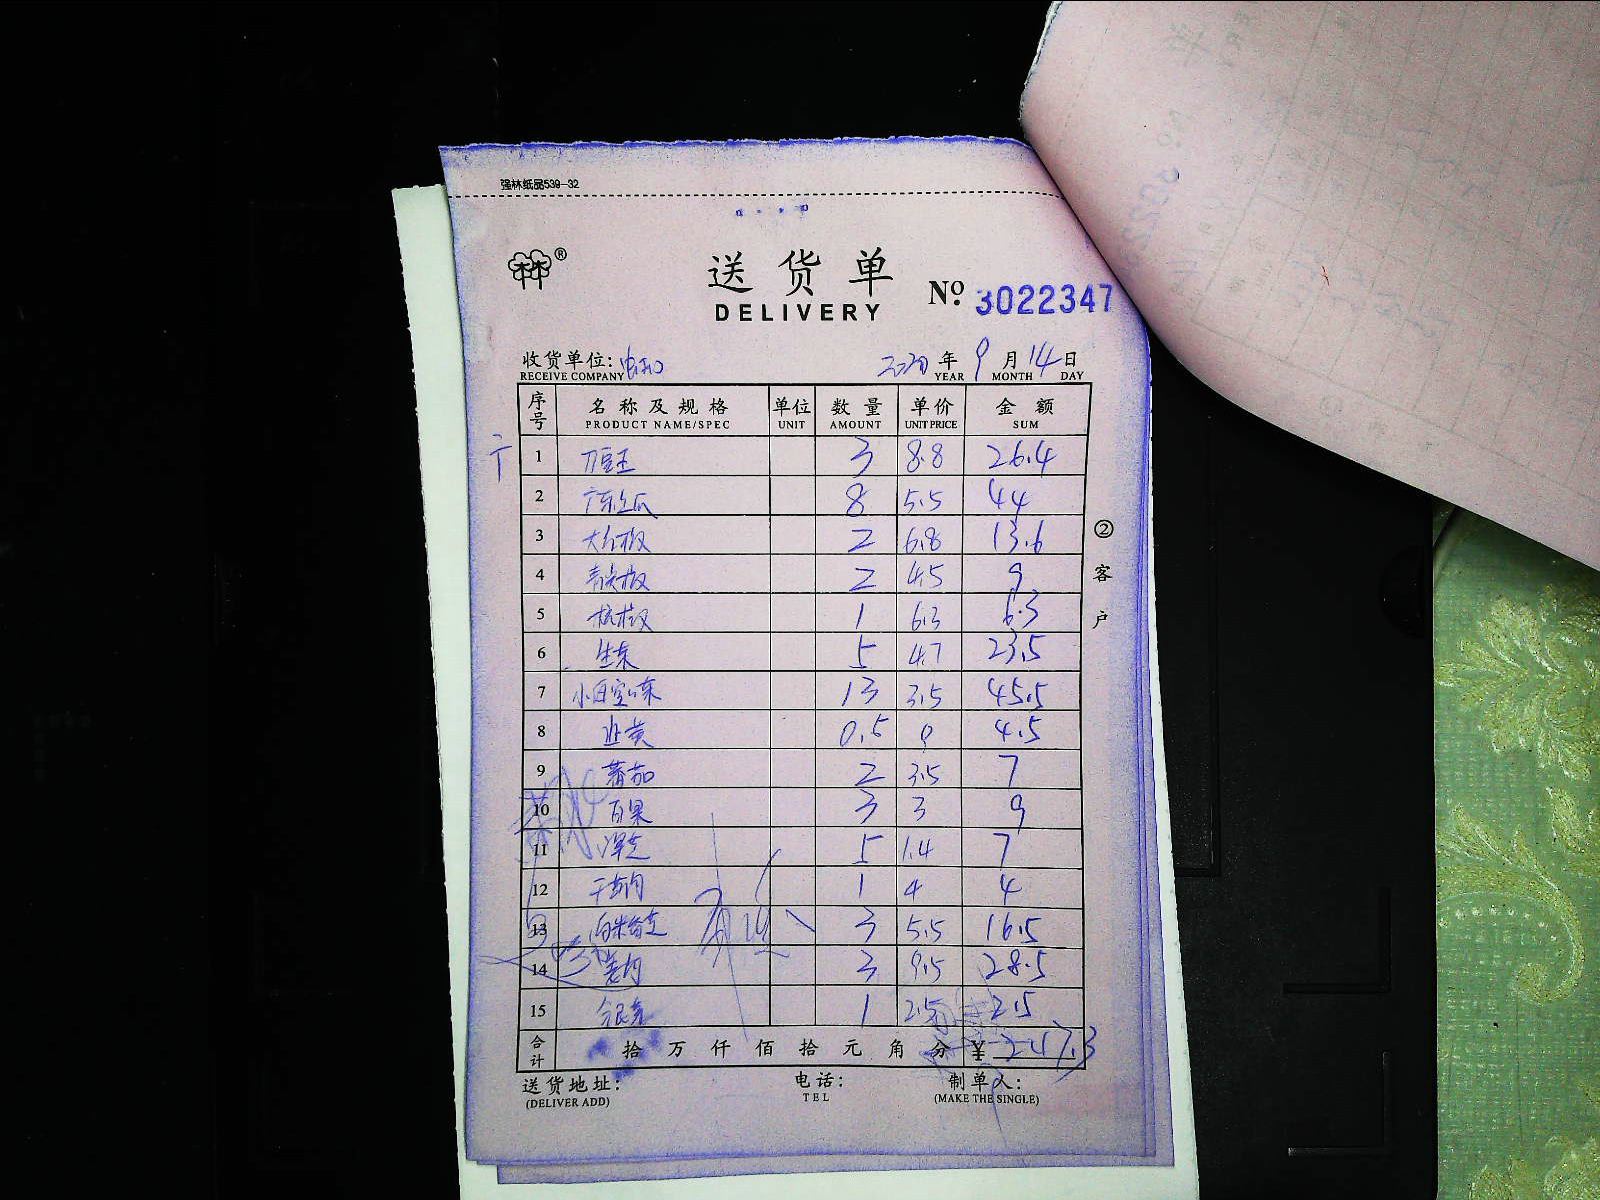 强林纸品539-32
林®
送货单
DELIVERY
No. 3022347
收货单位: 年 9 月 14 日
RECEIVE COMPANY YEAR MONTH DAY
序号 名称及规格 单位 数量 单价 金额
PRODUCT NAME/SPEC UNIT AMOUNT UNIT PRICE SUM
1 刀豆王 3 8.8 26.4
2 广东丝瓜 8 5.5 44
3 2 6.8 13.6
4 青尖椒 2 4.5 9
5 杭椒 1 6.3 6.3
6 生菜 5 4.7 23.5
7 小白菜 13 3.5 45.5
8 韭黄 0.5 9 4.5
9 蕃茄 2 3.5 7
10 百果 3 3 9
11 洋芋 5 1.4 7
12 1 4 4
13 3 5.5 16.5
14 3 9.5 28.5
15 1 2.5 2.5
合计 拾万仟佰拾元角分 ¥ 247.3
送货地址: 电话: 制单人:
(DELIVER ADD) TEL (MAKE THE SINGLE)
②客户